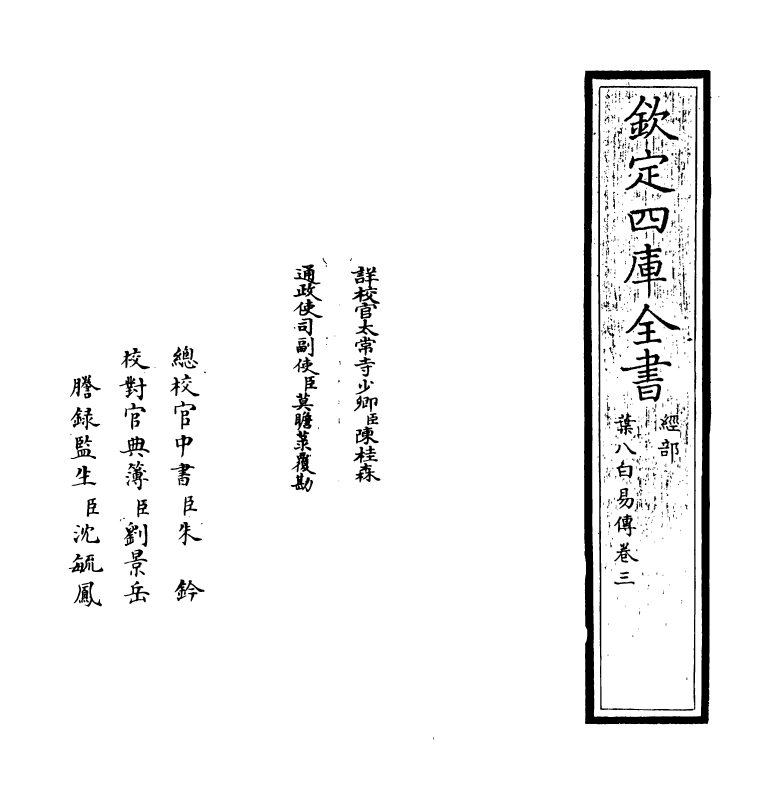 欽定四庫全書
經部
葉八白易傳卷三
詳校官太常寺少卿臣陳桂森
通政使司副使臣莫瞻菉覆勘
總校官中書臣朱鈐
校對官典簿臣劉景岳
謄録監生臣沈毓鳳